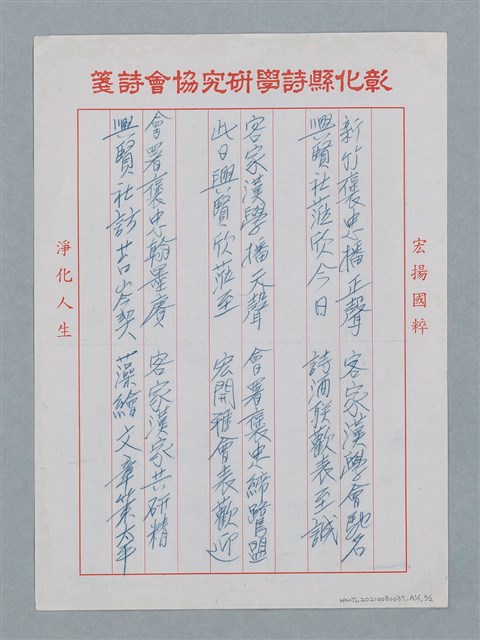 彰化縣詩學研究協會詩箋
宏揚國粹
新竹褒忠播正聲 客家漢學會馳名
興賢社蒞欣今日 詩酒联歡表至誠
客家漢學播天聲 會署褒忠締鷺盟
此日興賢欣蒞至 宏開雅會表歡迎
會署褒忠翰墨賡 客家漢家共研精
興賢社訪苔岑契 藻繪文章策太平
淨化人生